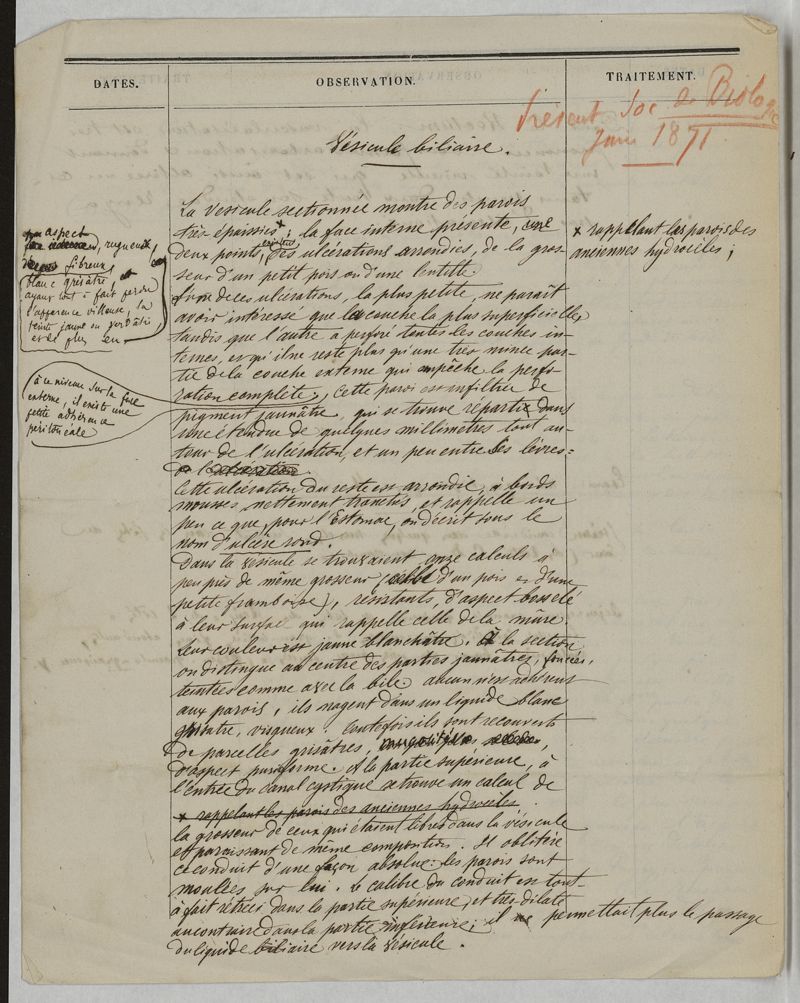 DATES.
OBSERVATION.
TRAITEMENT.
Présent Soc de Biologie
Juin 1871
Vésicule biliaire.
La vésicule sectionnée montre des parois
très épaissies *, la face interne présente, en
deux points, existent des ulcérations arrondies, de la gros-
seur d'un petit pois ou d'une lentille
L'une de ces ulcérations, la plus petite, ne paraît
avoir intéressé que la couche la plus superficielle
tandis que l'autre a perforé toutes les couches in-
ternes, et qu'il ne reste plus qu'une très mince par-
tie de la couche externe qui empêche la perfo-
ration complète, Cette paroi est infiltrée de
pigment jaunâtre, qui se trouve répartie dans
une étendue de quelques millimètres tout au-
tour de l'ulcération, et un peu entre les lèvres
l'ulcération
Cette ulcération du reste est arrondie, à bords
mousses nettement tranchés, et rappelle un
peu ce que, pour l'Estomac, on décrit sous le
nom d'ulcère rond.
Dans la vésicule se trouvaient onze calculs à
peu près de même grosseur (celle d'un pois et d'une
petite framboise), résistants, d'aspect bosselé
à leur surface qui rappelle celle de la mûre.
Leur couleur est jaune blanchâtre. A la section
on distingue au centre des parties jaunâtres, foncées,
teintées comme avec la bile. aucun n'est adhérent
aux parois, ils nagent dans un liquide blanc
grisâtre, visqueux. Toutefois ils sont recouverts
de parcelles grisâtres,
d'aspect puriforme. A la partie supérieure, à
l'entrée du canal cystique se trouve un calcul de
* rappelant les parois des anciennes hydrocèles
la grosseur de ceux qui étaient libres dans la vésicule
et paraissant de même composition. Il oblitère
ce conduit d'une façon absolue: les parois sont
moulées sur lui. Le calibre du conduit est tout-
à fait rétréci dans la partie supérieure, et très dilaté
au contraire dans la partie inférieure; il ne permettait plus le passage
du liquide biliaire vers la vésicule.
* rappelant les parois des
anciennes hydrocèles;
aspect
rugueux,
fibreux,
blanc grisâtre, et
ayant tout à fait perdu
l'apparence villeuse, la
teinte jaune ou verdâtre
à ce niveau sur la face
externe, il existe une
petite adhérence
péritonéale